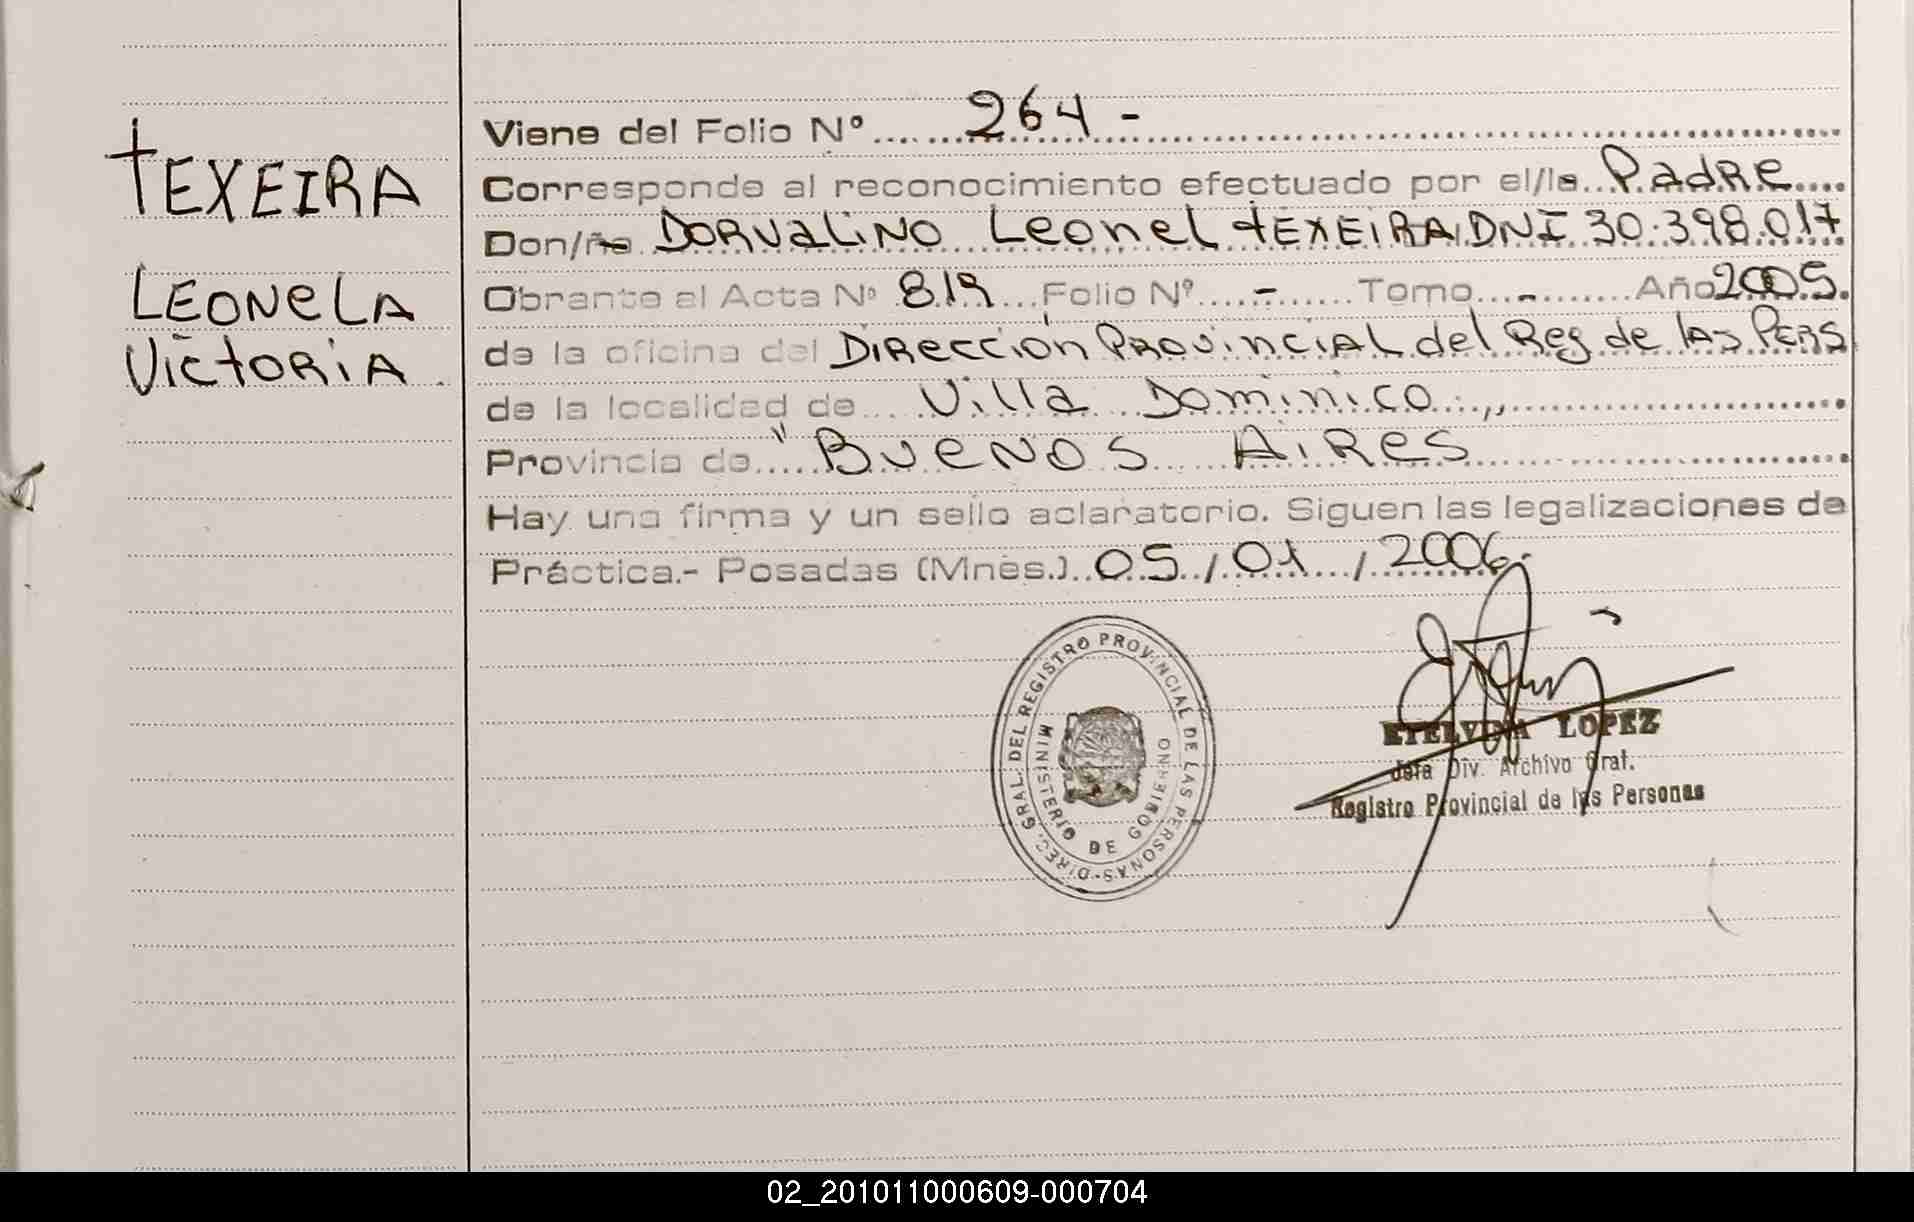 TEXEIRA
LEONELA
VICTORIA
Viene del Folio Nº 264 -
Corresponde al reconocimiento efectuado por el/la Padre
Don/ña DORVALINO Leonel TEXEIRA DNI 30.398.017
Obrante al Acta Nº 819 Folio Nº - Tomo - Año 2005.
de la oficina del Dirección Provincial del Reg de las Pers
de la localidad de Villa Dominico.,,
Provincia de " Buenos Aires
Hay una firma y un sello aclaratorio. Siguen las legalizaciones de
Práctica.- Posadas (Mnes.) 05 / 01 / 2006.
DIREC. GRAL. DEL REGISTRO PROVINCIAL DE LAS PERSONAS-
MINISTERIO DE GOBIERNO
ETELVINA LOPEZ
Jefa Div. Archivo Gral.
Registro Provincial de las Personas
02_201011000609-000704